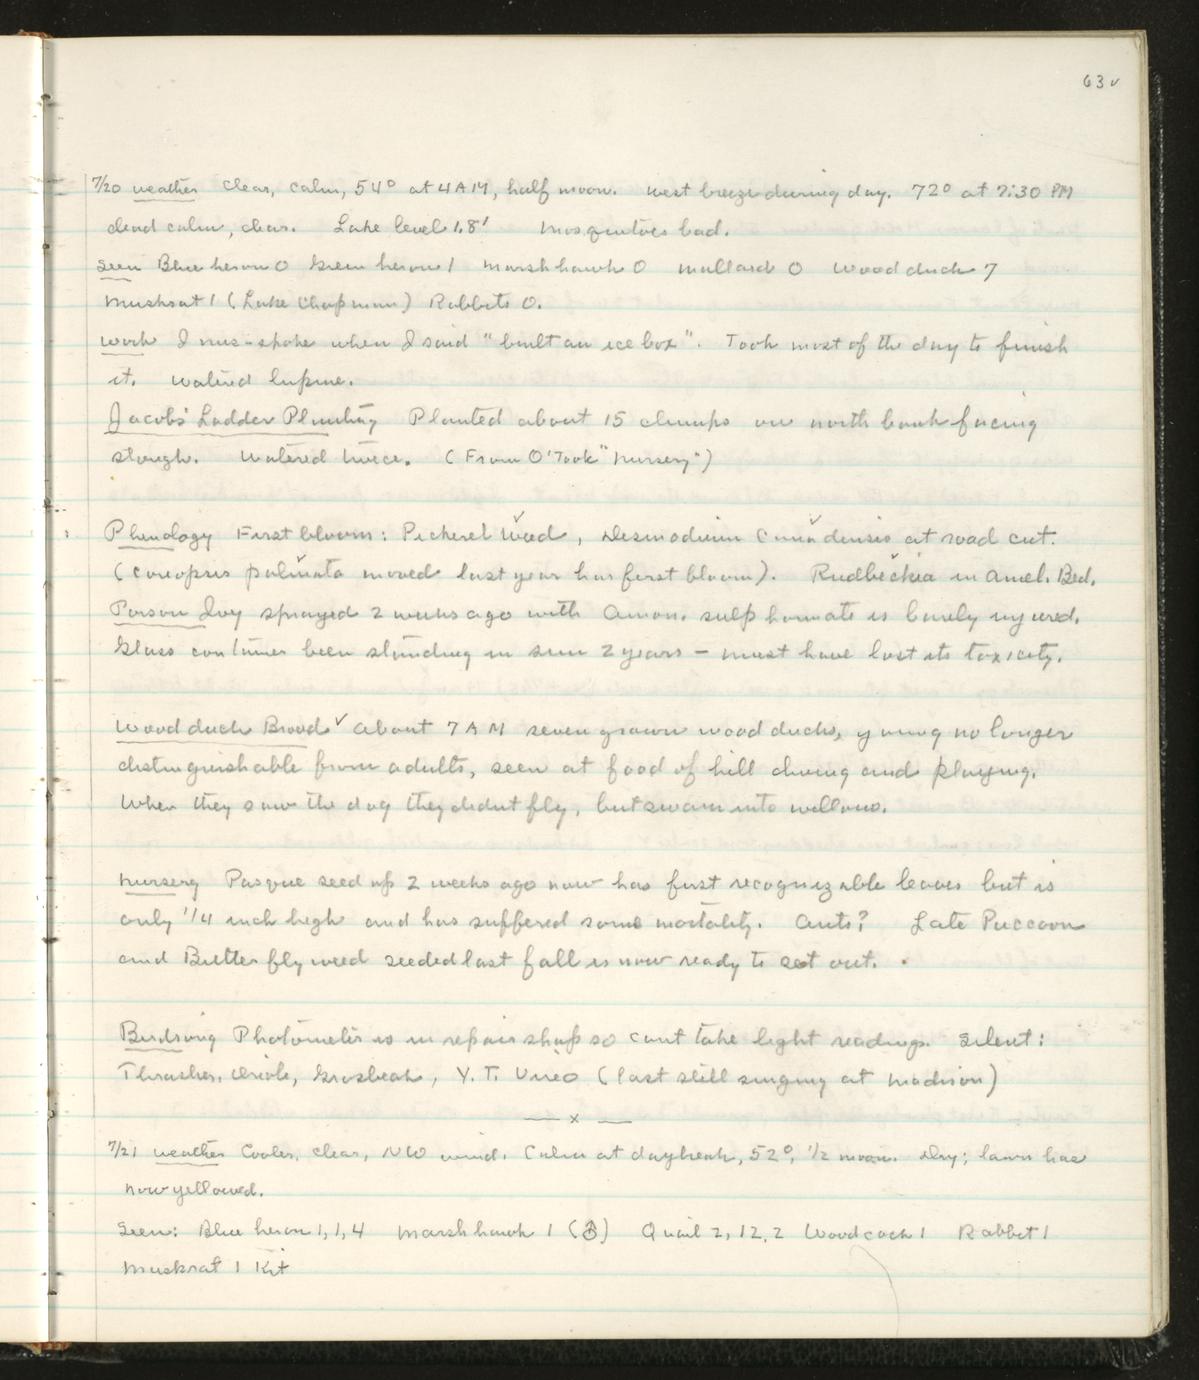 63 ✓
7/20 weather Clear, calm, 54° at 4 AM, half moon. West breeze during day. 72° at 7:30 PM
dead calm, clear. Lake level 1.8' Mosquitoes bad.
Seen Blue heron 0 Green heron 1 Marsh hawk 0 Mallard 0 Wood duck 7
Muskrat 1 (Lake Chapman) Rabbits 0.
Work I mis-spoke when I said "built an ice box". Took most of the day to finish
it. Watered lupine.
Jacobs' Ladder Planting Planted about 15 clumps on north bank facing
slough. Watered twice. (From O'Took "Nursery")
Phenology First bloom: Pickerel Weed, Desmodium Canadensis at road cut.
(Coreopsis palmata moved last year has first bloom). Rudbeckia in Amel. Bed.
Poison Ivy sprayed 2 weeks ago with Amon. sulphamate is barely injured.
Glass container been standing in sun 2 years – must have lost its toxicity.
Wood duck Brood ✓ About 7 AM seven grown wood ducks, young no longer
distinguishable from adults, seen at food of hill diving and playing.
When they saw the dog they didnt fly, but swam into willows.
Nursery Pasque seed up 2 weeks ago now has first recognizable leaves but is
only 1/4 inch high and has suffered some mortality. Ants? Late Puccoon
and Butterfly weed seeded last fall is now ready to set out.
Birdsong Photometer is in repair shop so cant take light readings. Silent:
Thrasher, Oriole, Grosbeak, Y. T. Vireo (last still singing at Madison)
— x —
7/21 weather Cooler, clear, NW wind. Calm at daybreak, 52°, 1/2 moon. Dry; lawn has
now yellowed.
Seen: Blue heron 1, 1, 4 Marsh hawk 1 (♂) Quail 2, 12, 2 Woodcock 1 Rabbit 1
Muskrat 1 Kit